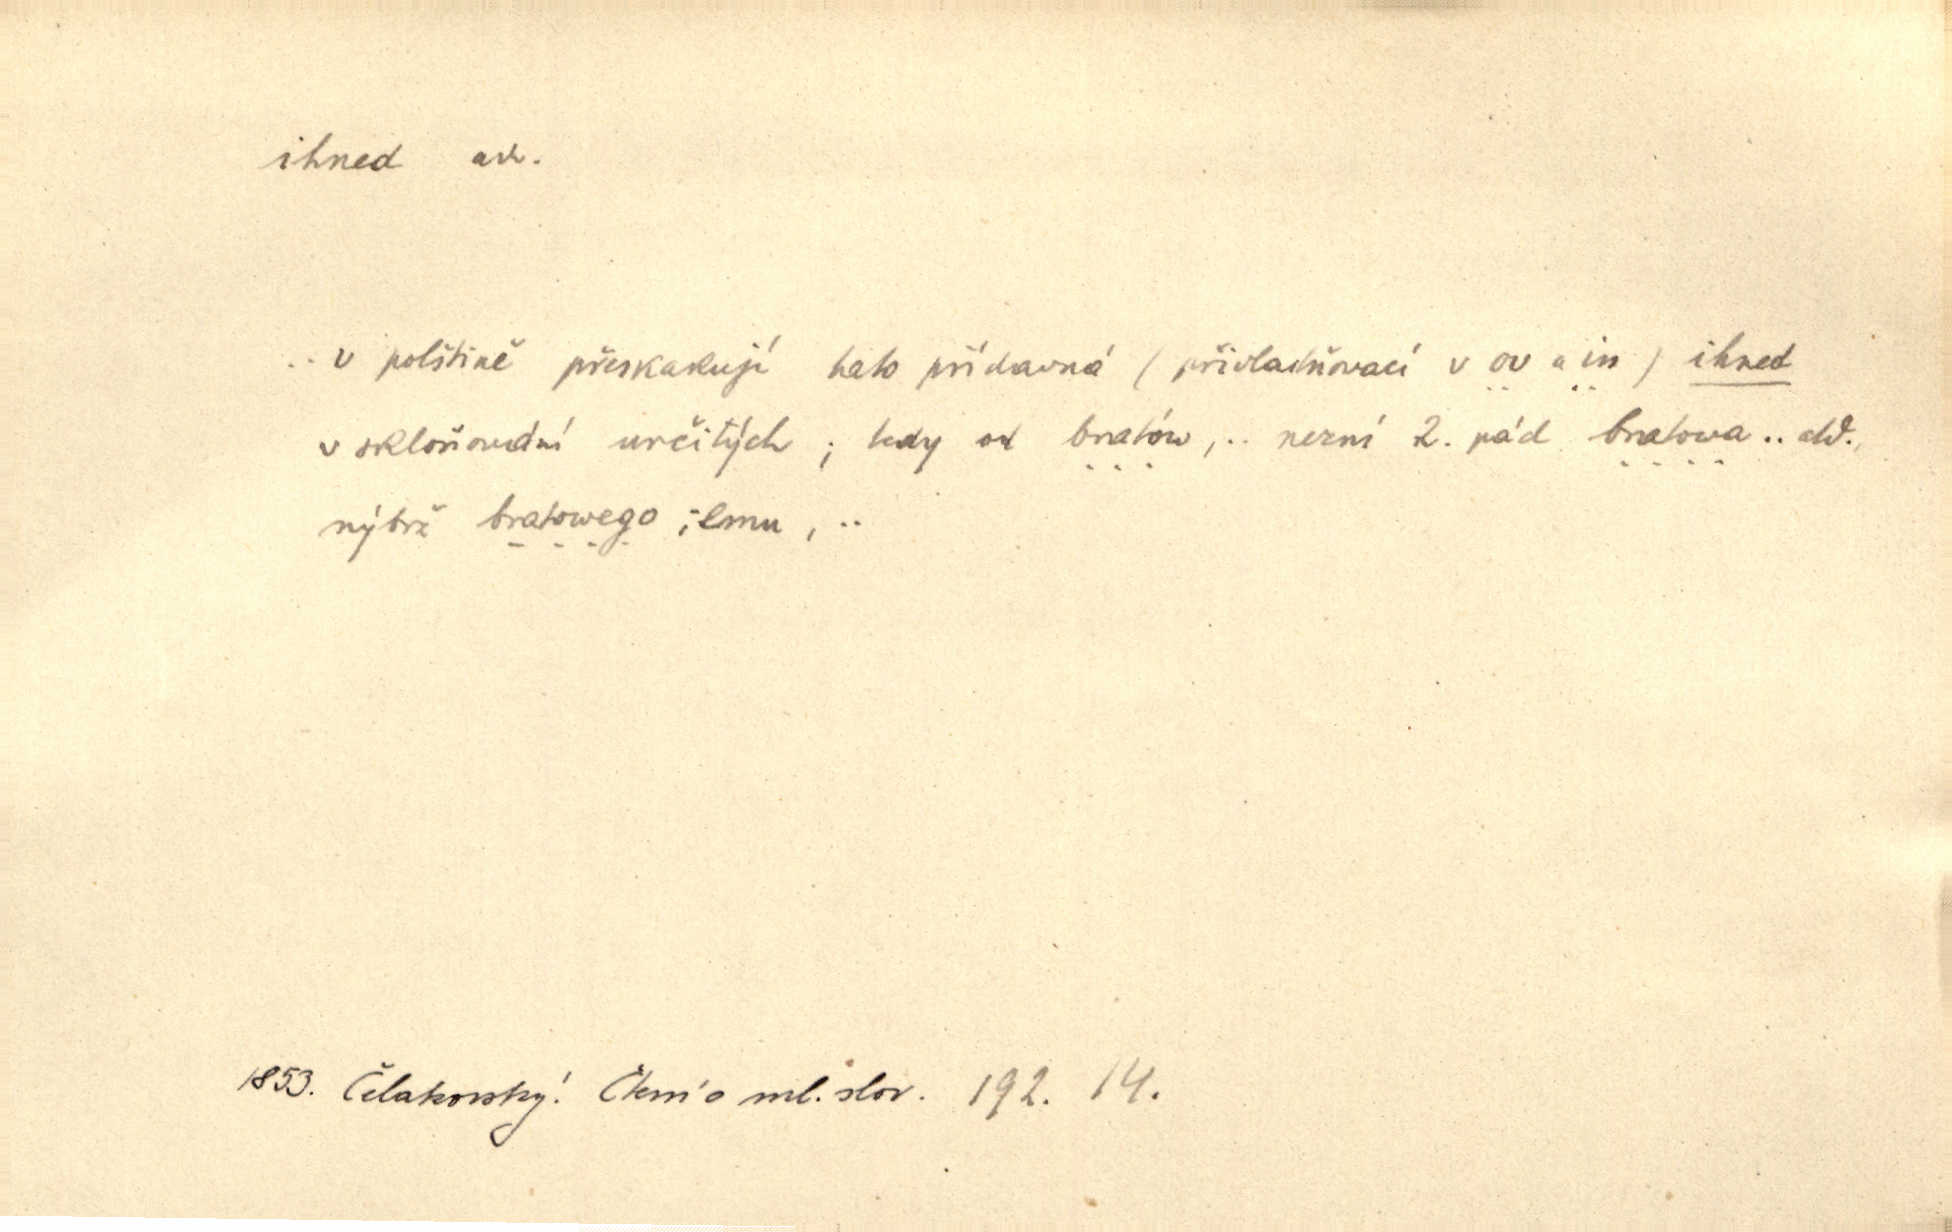 ihned adv.
.. v polštině přeskakují tato přídavná (přivlastňovací v ov a in) ihned
v skloňování určitých; tedy od bratów, .. nezní 2. pád bratowa .. atd.,
nýbrž bratowego, -emu, ..
1853. Čelakovský. Čtení o ml. slov. 192. 14.